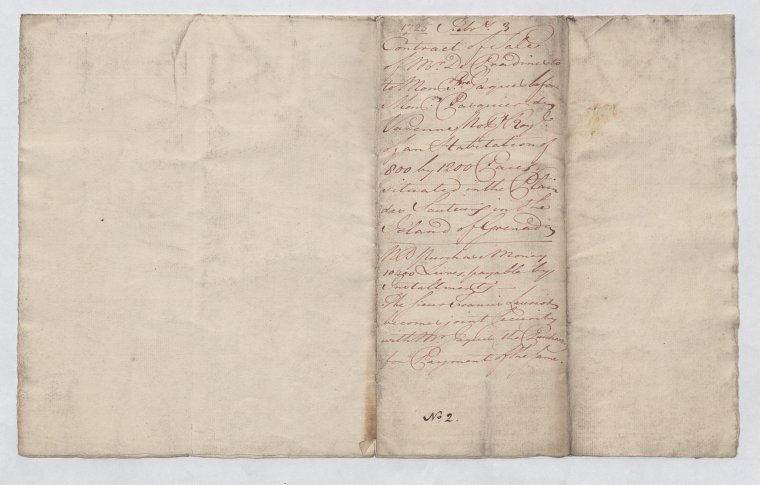 1725 Febry. 3
Contract of Sale
of Mr. De Gradines
to Monsr. Paquet before
Monr. Pasquier de
Varenne Not. Roy.
of an Habitation of
800 by 1200 Paces
situated in the Plain
des Sauteurs in the
Island of Grenada
NB Purchase Money
Livres, payable by
Installments
The Sieur Francis
becomes joint Security
with Mr. the Purchaser
for Payment of the Same.
No. 2.